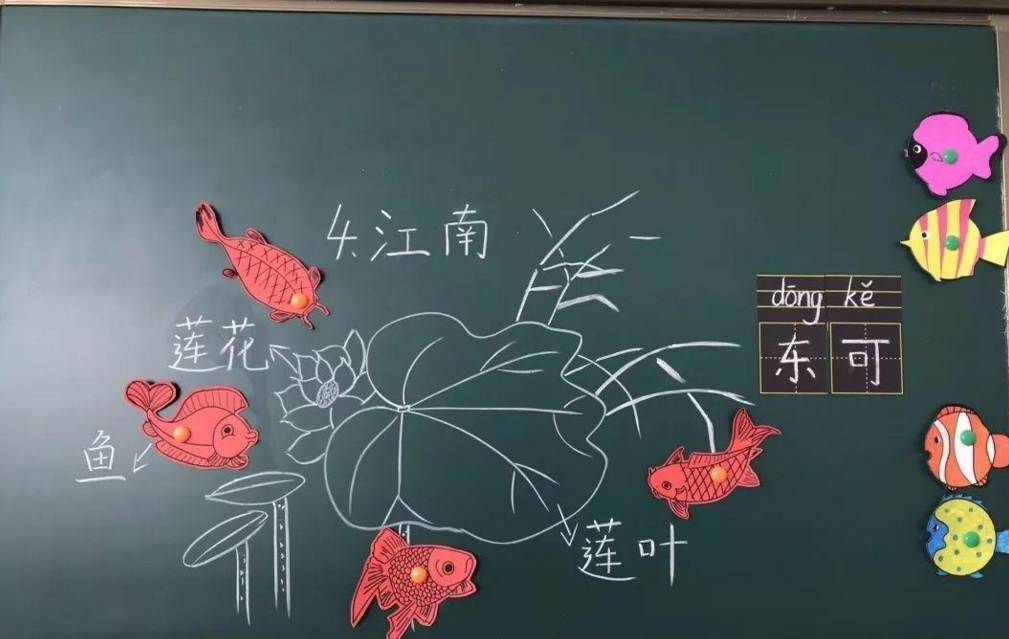 4.江南
dōng kě
东可
莲花
鱼
莲叶